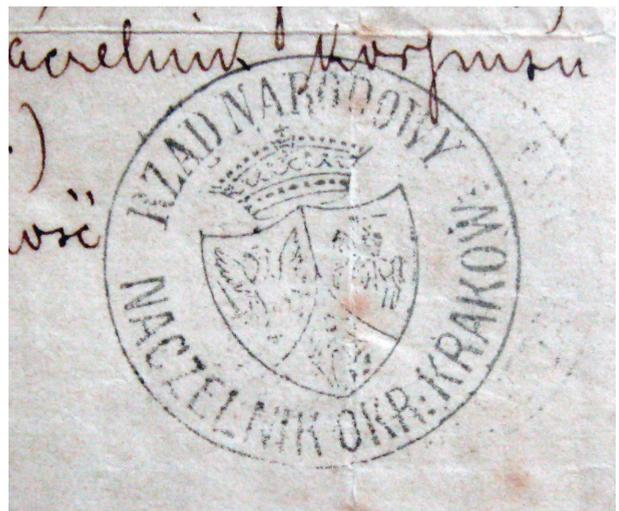 aczelnik Korpusu
RZĄD NARODOWY
NACZELNIK OKR: KRAKOW: